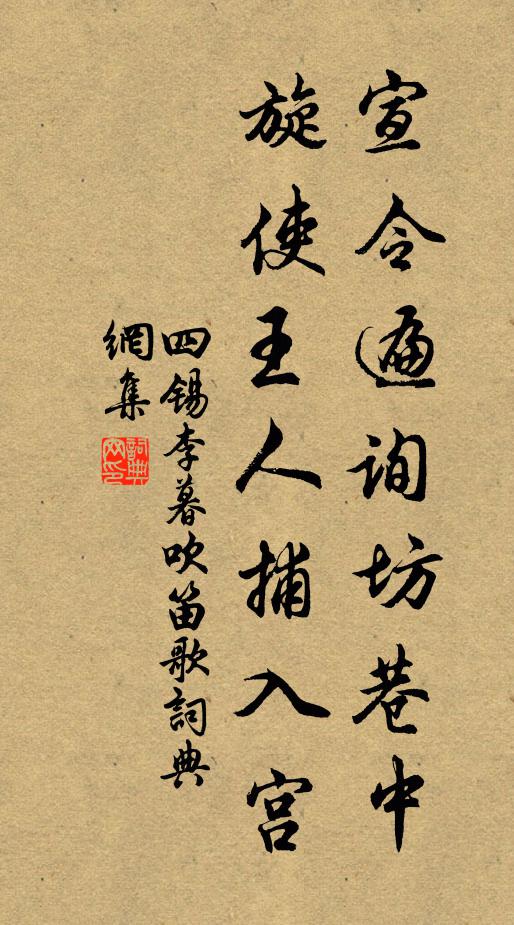 宣令遍询坊巷中
旋使王人捕入宫
四锡李暮吹笛歌詞典
網集
詞典
网印